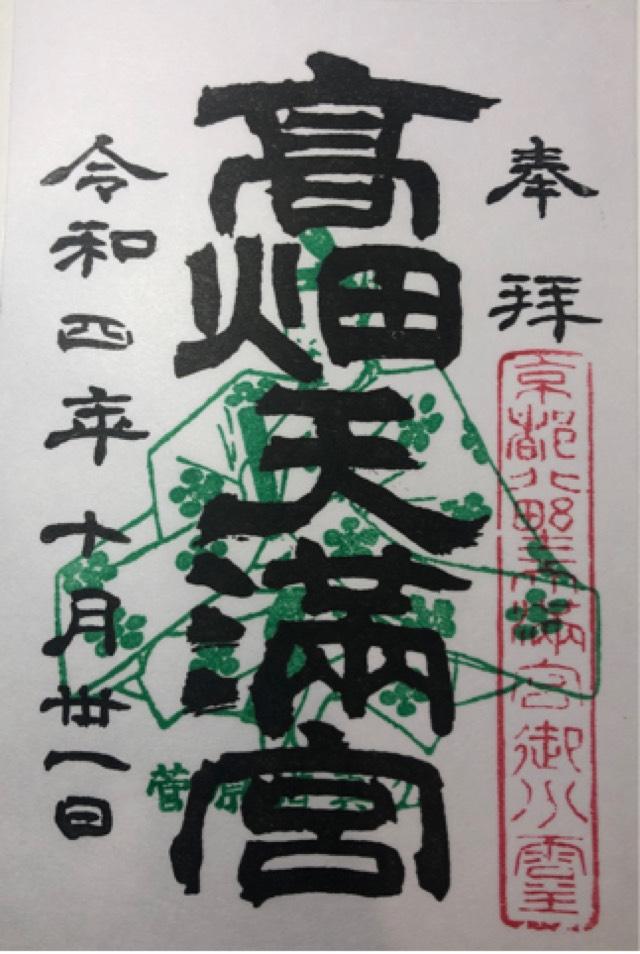 奉拝
京都北野天満宮御分霊
高畑天満宮
菅原道真公
令和四年十月丗一日